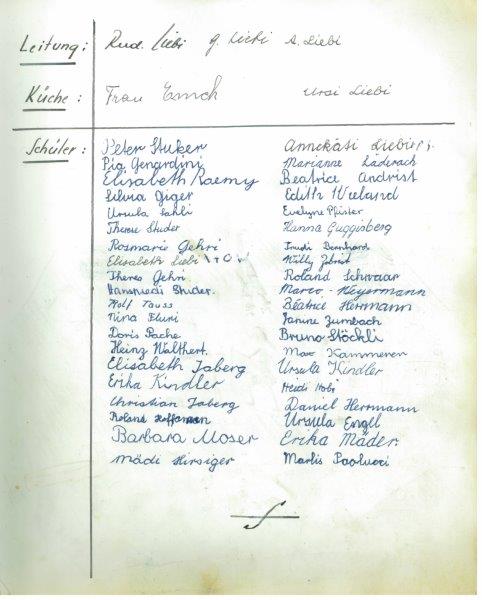 Leitung: Rud. Liebi G. Liebi A. Liebi
Küche: Frau Emch Ursi Liebi
Schüler: Peter Stuker Annekäti Liebi
Pia Genardini Marianne Läderach
Elisabeth Raemy Beatrice Andrist
Silvia Gyger Edith Wieland
Ursula Sahli Evelyne Pfister
Therese Studer Hanna Guggisberg
Rosmarie Gehri Trudi Bernhard
Elisabeth Liebi Willy
Theres Gehri Roland Schwaar
Hansruedi Studer. Marco Meyermann
Rolf Tauss Béatrice Herrmann
Nina Janine Zumbach
Doris Pache Bruno Stöckli
Heinz Walthert. Max Kammermann
Elisabeth Jaberg Ursula Kindler
Erika Kindler Heidi
Christian Jaberg Daniel Herrmann
Roland Hoffmann Ursula Engel
Barbara Moser Erika Mäder.
Mädi Hirsiger Marlis Paolucci